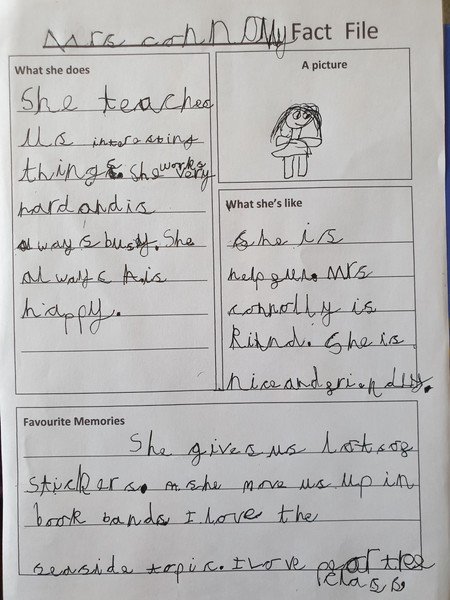 Mrs connolly Fact File
What she does
She teaches
us interesting
things. She works very
hard and is
always busy. She
always is
happy.
A picture
What she's like
She is
helpfull. Mrs
connolly is
Kind. She is
nice and friendly.
Favourite Memories
She gives us lots of
stickers. she move us up in
book bands I love the
seaside topic. I love
class.